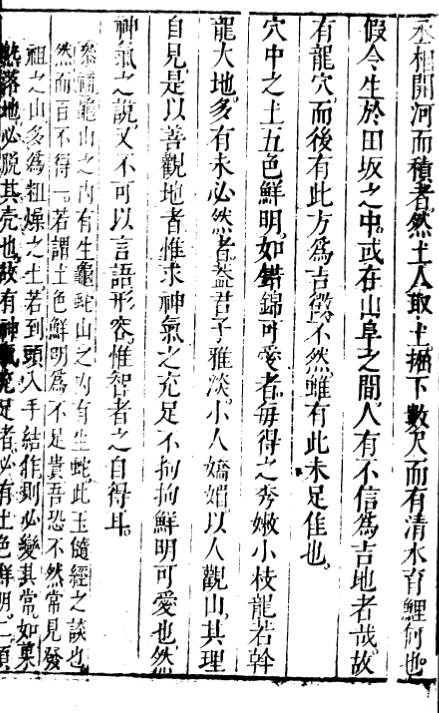 丞相開河而積者然土人取土掘下數尺而有清水育鯉何也
假令生於田坂之中或在山阜之間人有不信為吉地者哉故
有龍穴而後有此方為吉徵不然雖有此未足佳也
穴中之土五色鮮明如錯錦可愛者每得之秀嫩小枝龍若幹
龍大地多有未必然者蓋君子雅淡小人嬌媚以人觀山其理
自見是以善觀地者惟求神氣之充足不拘拘鮮明可愛也然
神氣之說又不可以言語形容惟智者之自得耳
龜山之內有生龜蛇山之內有生蛇此玉髓經之談也
然而百不得一若謂土色鮮明為不足貴吾恐不然常見發
祖之山多為粗燥之土若到頭入手結作則必變其常如菓
熟落地必脫其壳也故有神氣充足者必有土色鮮明二項